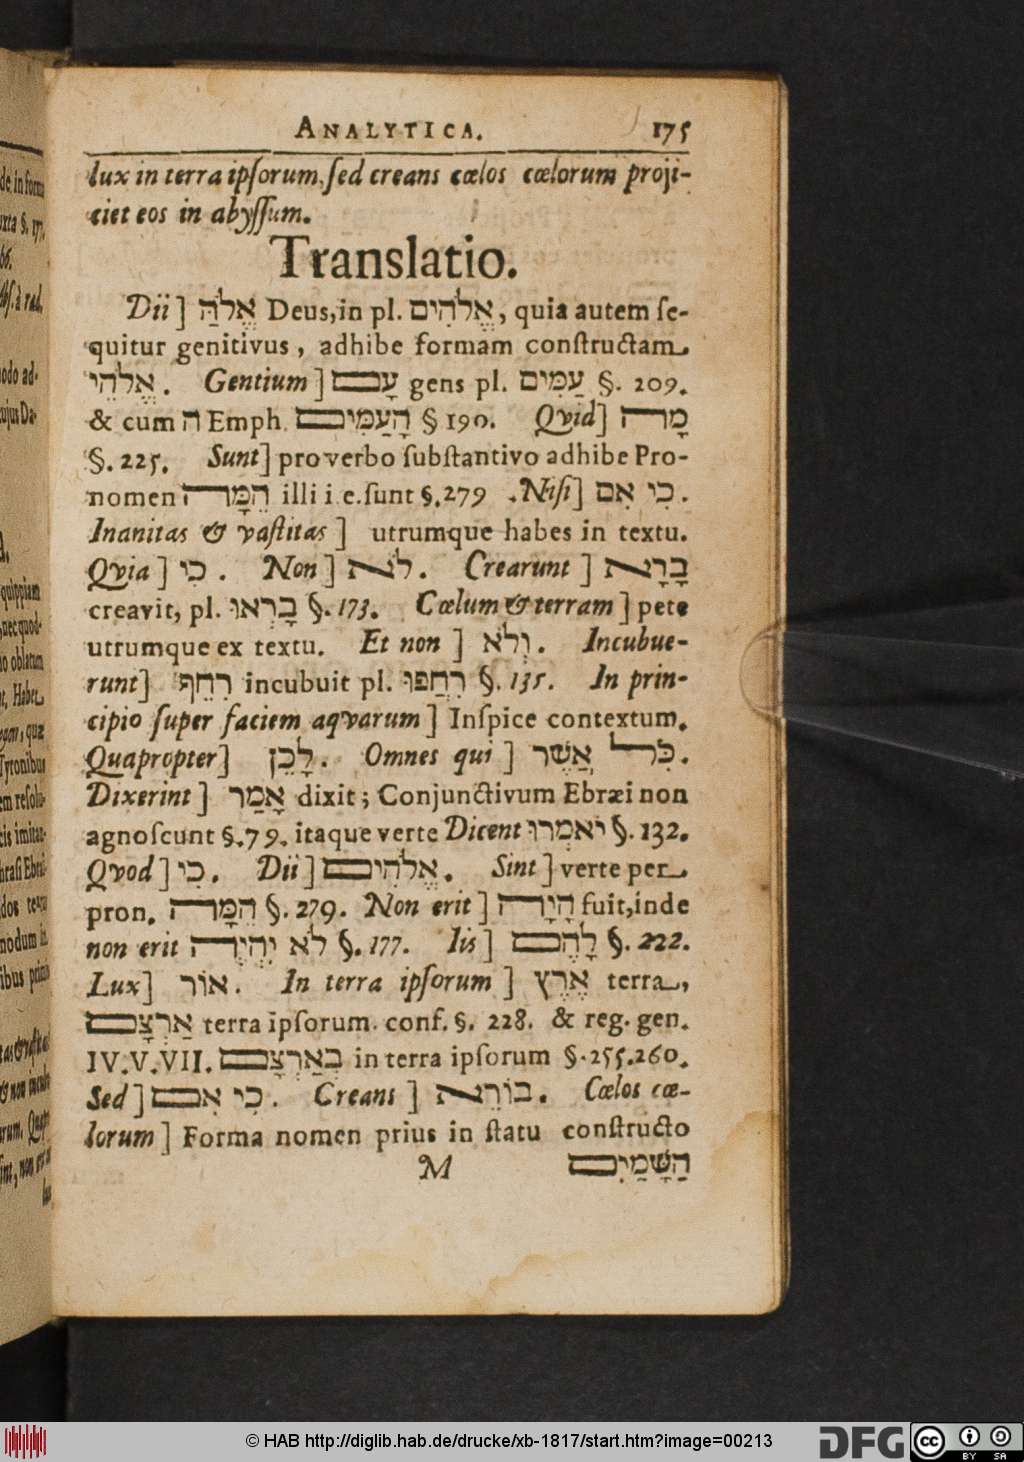 ANALYTICA. 175
lux in terra ipſorum, ſed creans cœlos cœlorum proji-
ciet eos in abyſſum.
Translatio.
Dii] אֱלֹהַּ Deus, in pl. אֱלֹהִים, quia autem ſe-
quitur genitivus, adhibe formam conſtructam
אֱלֹהֵי. Gentium] עָם gens pl. עַמִּים §. 209.
& cum ה Emph. הָעַמִּים § 190. Qvid] מָה
§. 225. Sunt] pro verbo ſubſtantivo adhibe Pro-
nomen הֵמָּה illi i.e. ſunt §. 279. Niſi] כִּי אִם.
Inanitas & vaſtitas] utrumque habes in textu.
Qvia] כִּי. Non] לֹא. Crearunt] בָּרָא
creavit, pl. בָּרְאוּ §. 173. Cœlum & terram] pete
utrumque ex textu. Et non] וְלֹא. Incubue-
runt] רִחֵף incubuit pl. רִחֲפוּ §. 135. In prin-
cipio ſuper faciem aqvarum] Inſpice contextum.
Quapropter] לָכֵן. Omnes qui] כֹּל אֲשֶׁר.
Dixerint] אָמַר dixit; Conjunctivum Ebræi non
agnoſcunt §. 79. itaque verte Dicent יֹאמְרוּ §. 132.
Qvod] כִּי. Dii] אֱלֹהִים. Sint] verte per
pron. הֵמָּה §. 279. Non erit] הָיָה fuit, inde
non erit לֹא יִהְיֶה §. 177. Iis] לָהֶם §. 222.
Lux] אוֹר. In terra ipſorum] אֶרֶץ terra,
אַרְצָם terra ipſorum. conf. §. 228. & reg. gen.
IV. V. VII. בְּאַרְצָם in terra ipſorum §. 255. 260.
Sed] כִּי אִם. Creans] בּוֹרֵא. Cœlos cœ-
lorum] Forma nomen prius in ſtatu conſtructo
M הַשָּׁמַיִם
© HAB http://diglib.hab.de/drucke/xb-1817/start.htm?image=00213
DFG cc BY SA